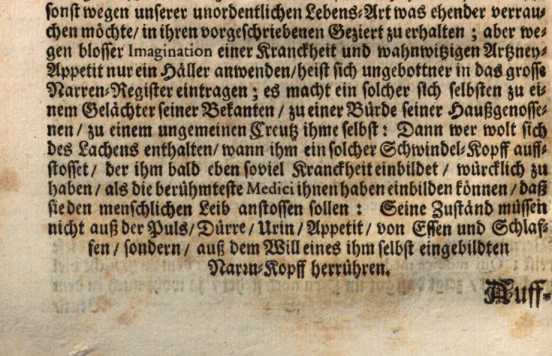 sonst wegen unserer unordentlichen Lebens-Art was ehender verrau-
chen möchte/ in ihren vorgeschriebenen Geziert zu erhalten ; aber we-
gen blosser Imagination einer Kranckheit und wahnwitzigen Artzney-
Appetit nur ein Häller anwenden/ heist sich ungebottner in das grosse
Narren-Register eintragen ; es macht ein solcher sich selbsten zu ei-
nem Gelächter seiner Bekanten / zu einer Bürde seiner Haußgenosse-
nen / zu einem ungemeinen Creutz ihme selbst : Dann wer wolt sich
des Lachens enthalten/ wann ihm ein solcher Schwindel-Kopff auff-
stosset / der ihm bald eben soviel Kranckheit einbildet / würcklich zu
haben / als die berühmteste Medici ihnen haben einbilden können / daß
sie den menschlichen Leib anstossen sollen : Seine Zuständ müssen
nicht auß der Puls/ Dürre/ Urin/ Appetit/ von Essen und Schlaf-
fen/ sondern/ auß dem Will eines ihm selbst eingebildten
Narrn-Kopff herrühren.
Auff-